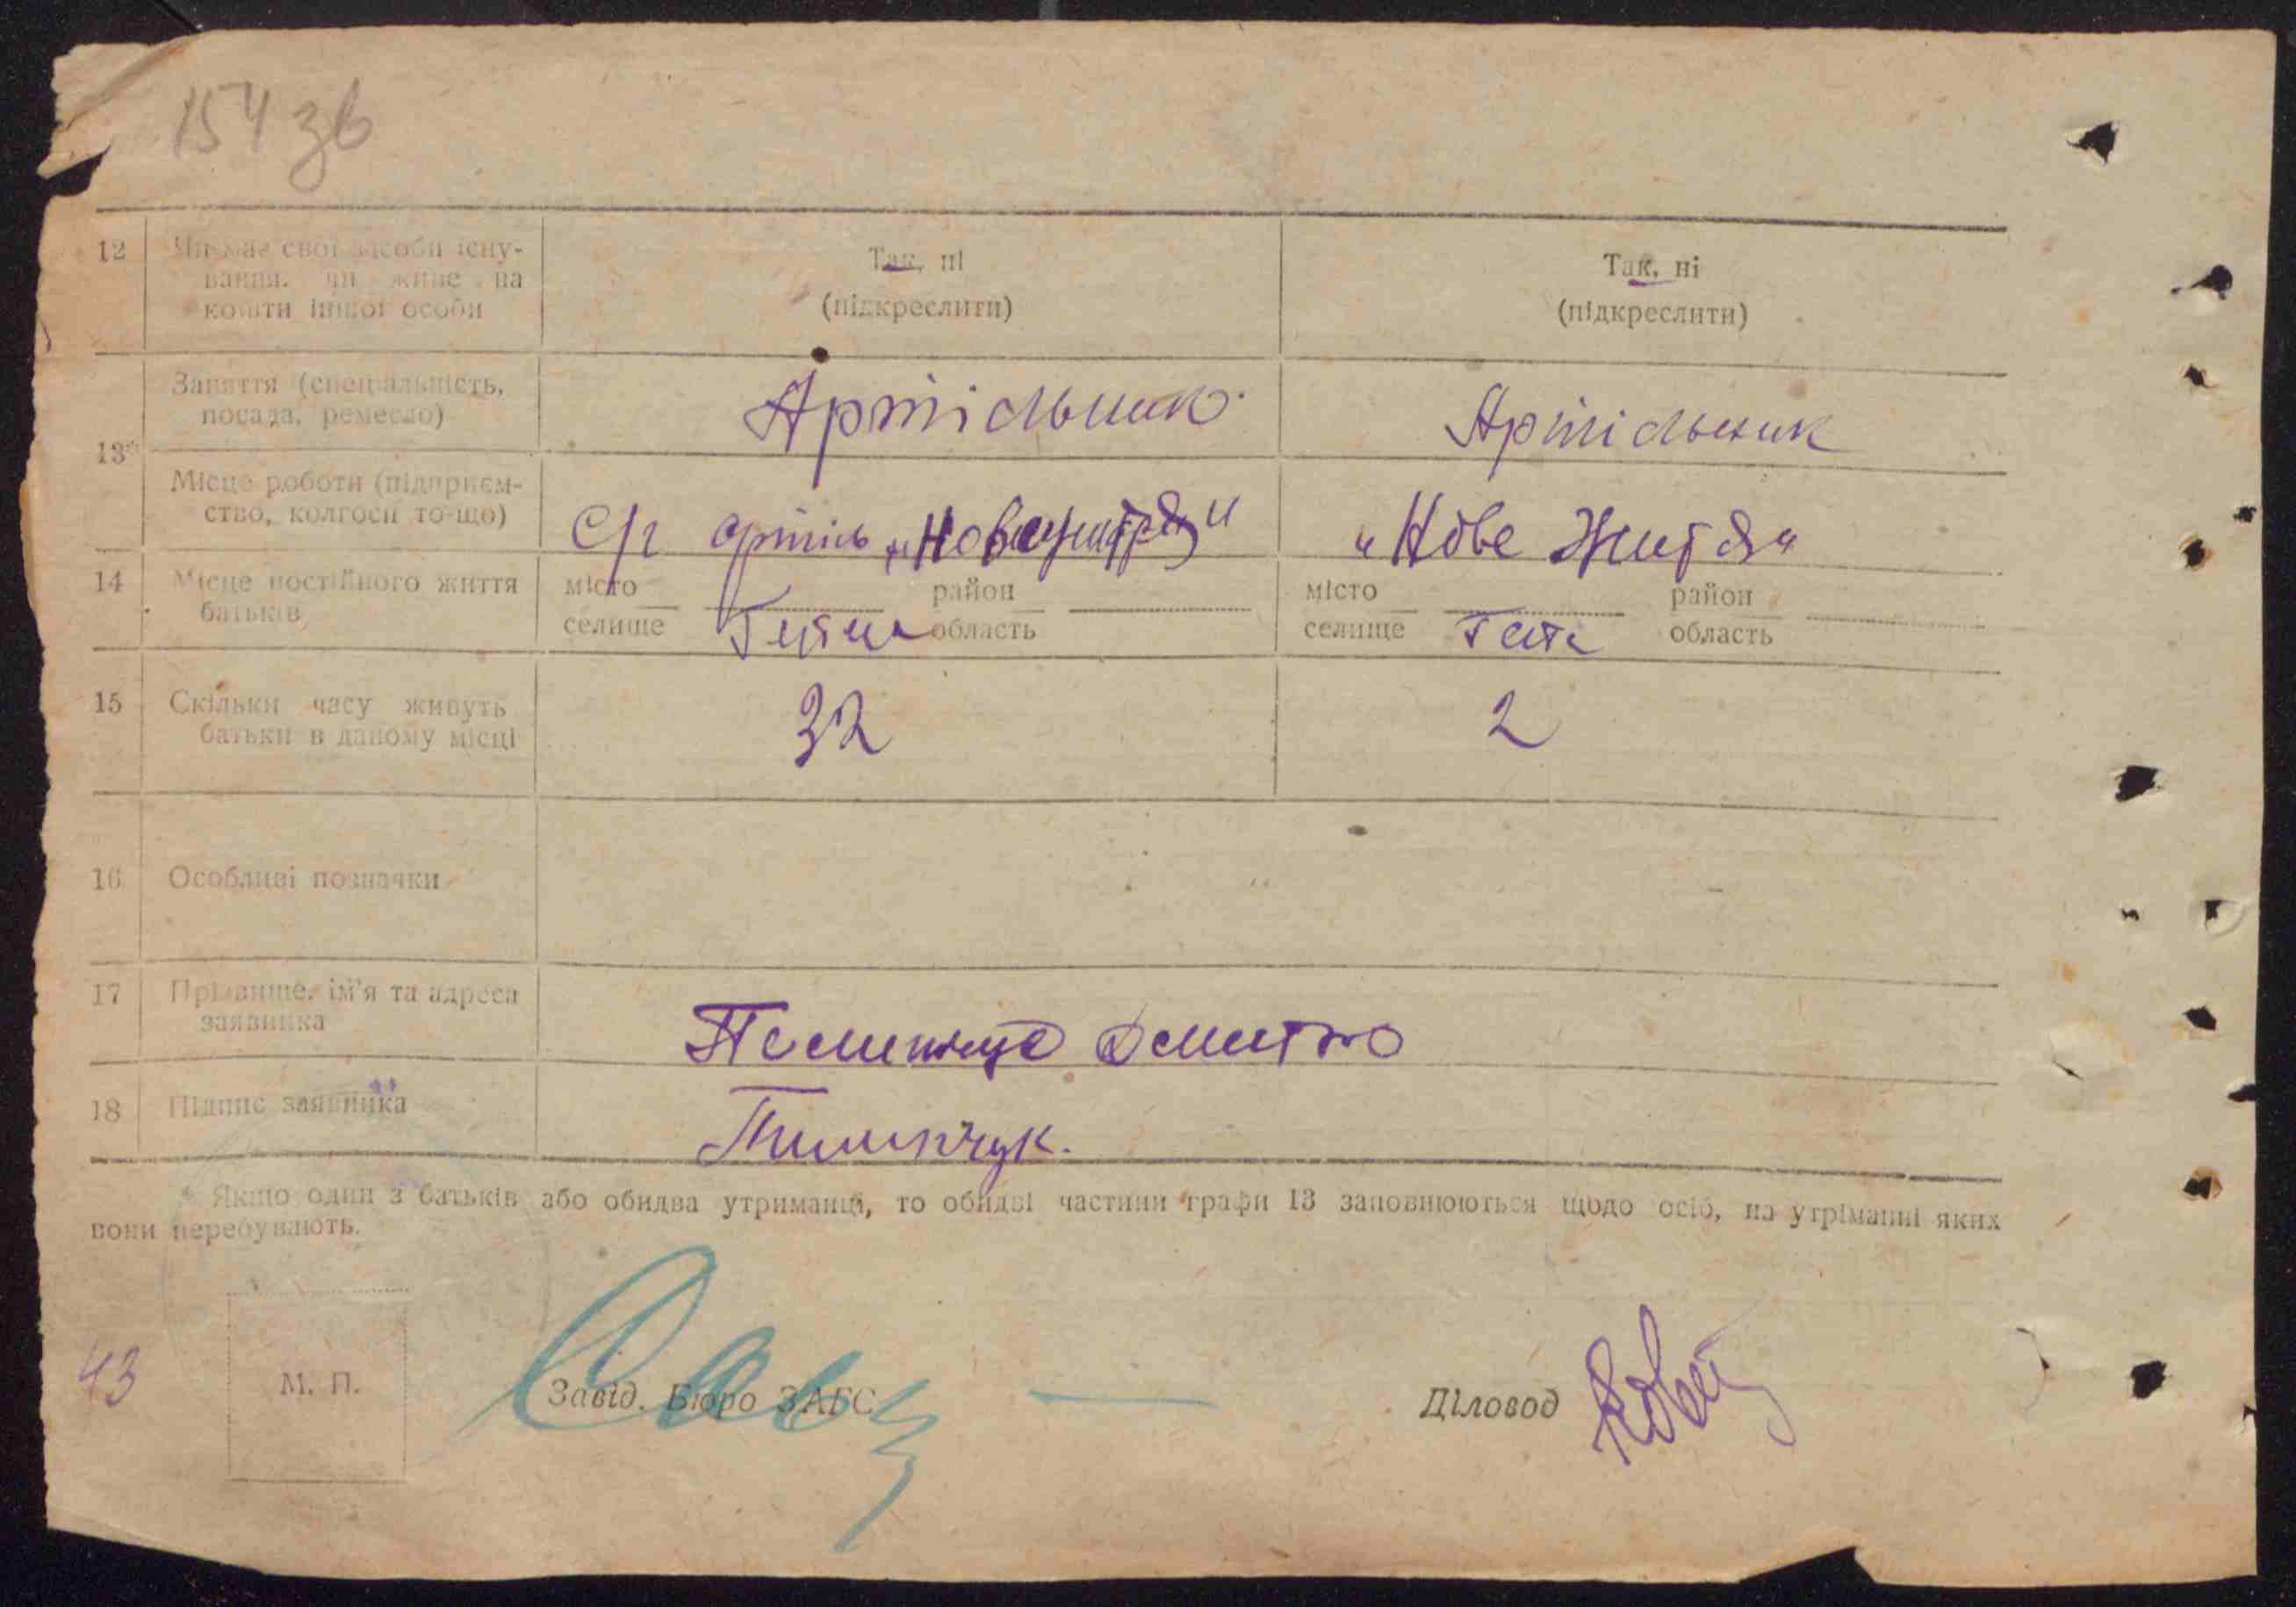 154 зв
12 Чи має свої засоби існу- Так, ні Так, ні
вання, чи живе на
кошти іншої особи (підкреслити) (підкреслити)
Заняття (спеціальність, Артільник Артільник
посада, ремесло)
13*
Місце роботи (підприєм- С/г артіль „Нове життя" „Нове Життя"
ство, колгосп то-що)
14 Місце постійного життя місто район місто район
батьків селище область селище область
15 Скільки часу живуть 32 2
батьки в даному місці
16 Особливі позначки
17 Прізвище, ім'я та адреса
заявника Дмитро
18 Підпис заявника
* Якщо один з батьків або обидва утриманці, то обидві частини графи 13 заповнюються щодо осіб, на утріманні яких
вони перебувають.
43 М. П. Завід. Бюро ЗАГС Діловод